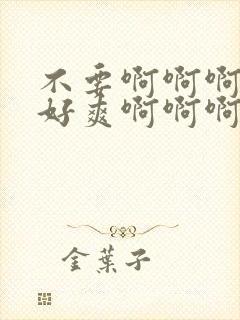 不要啊啊啊
好爽啊啊啊
金葉子